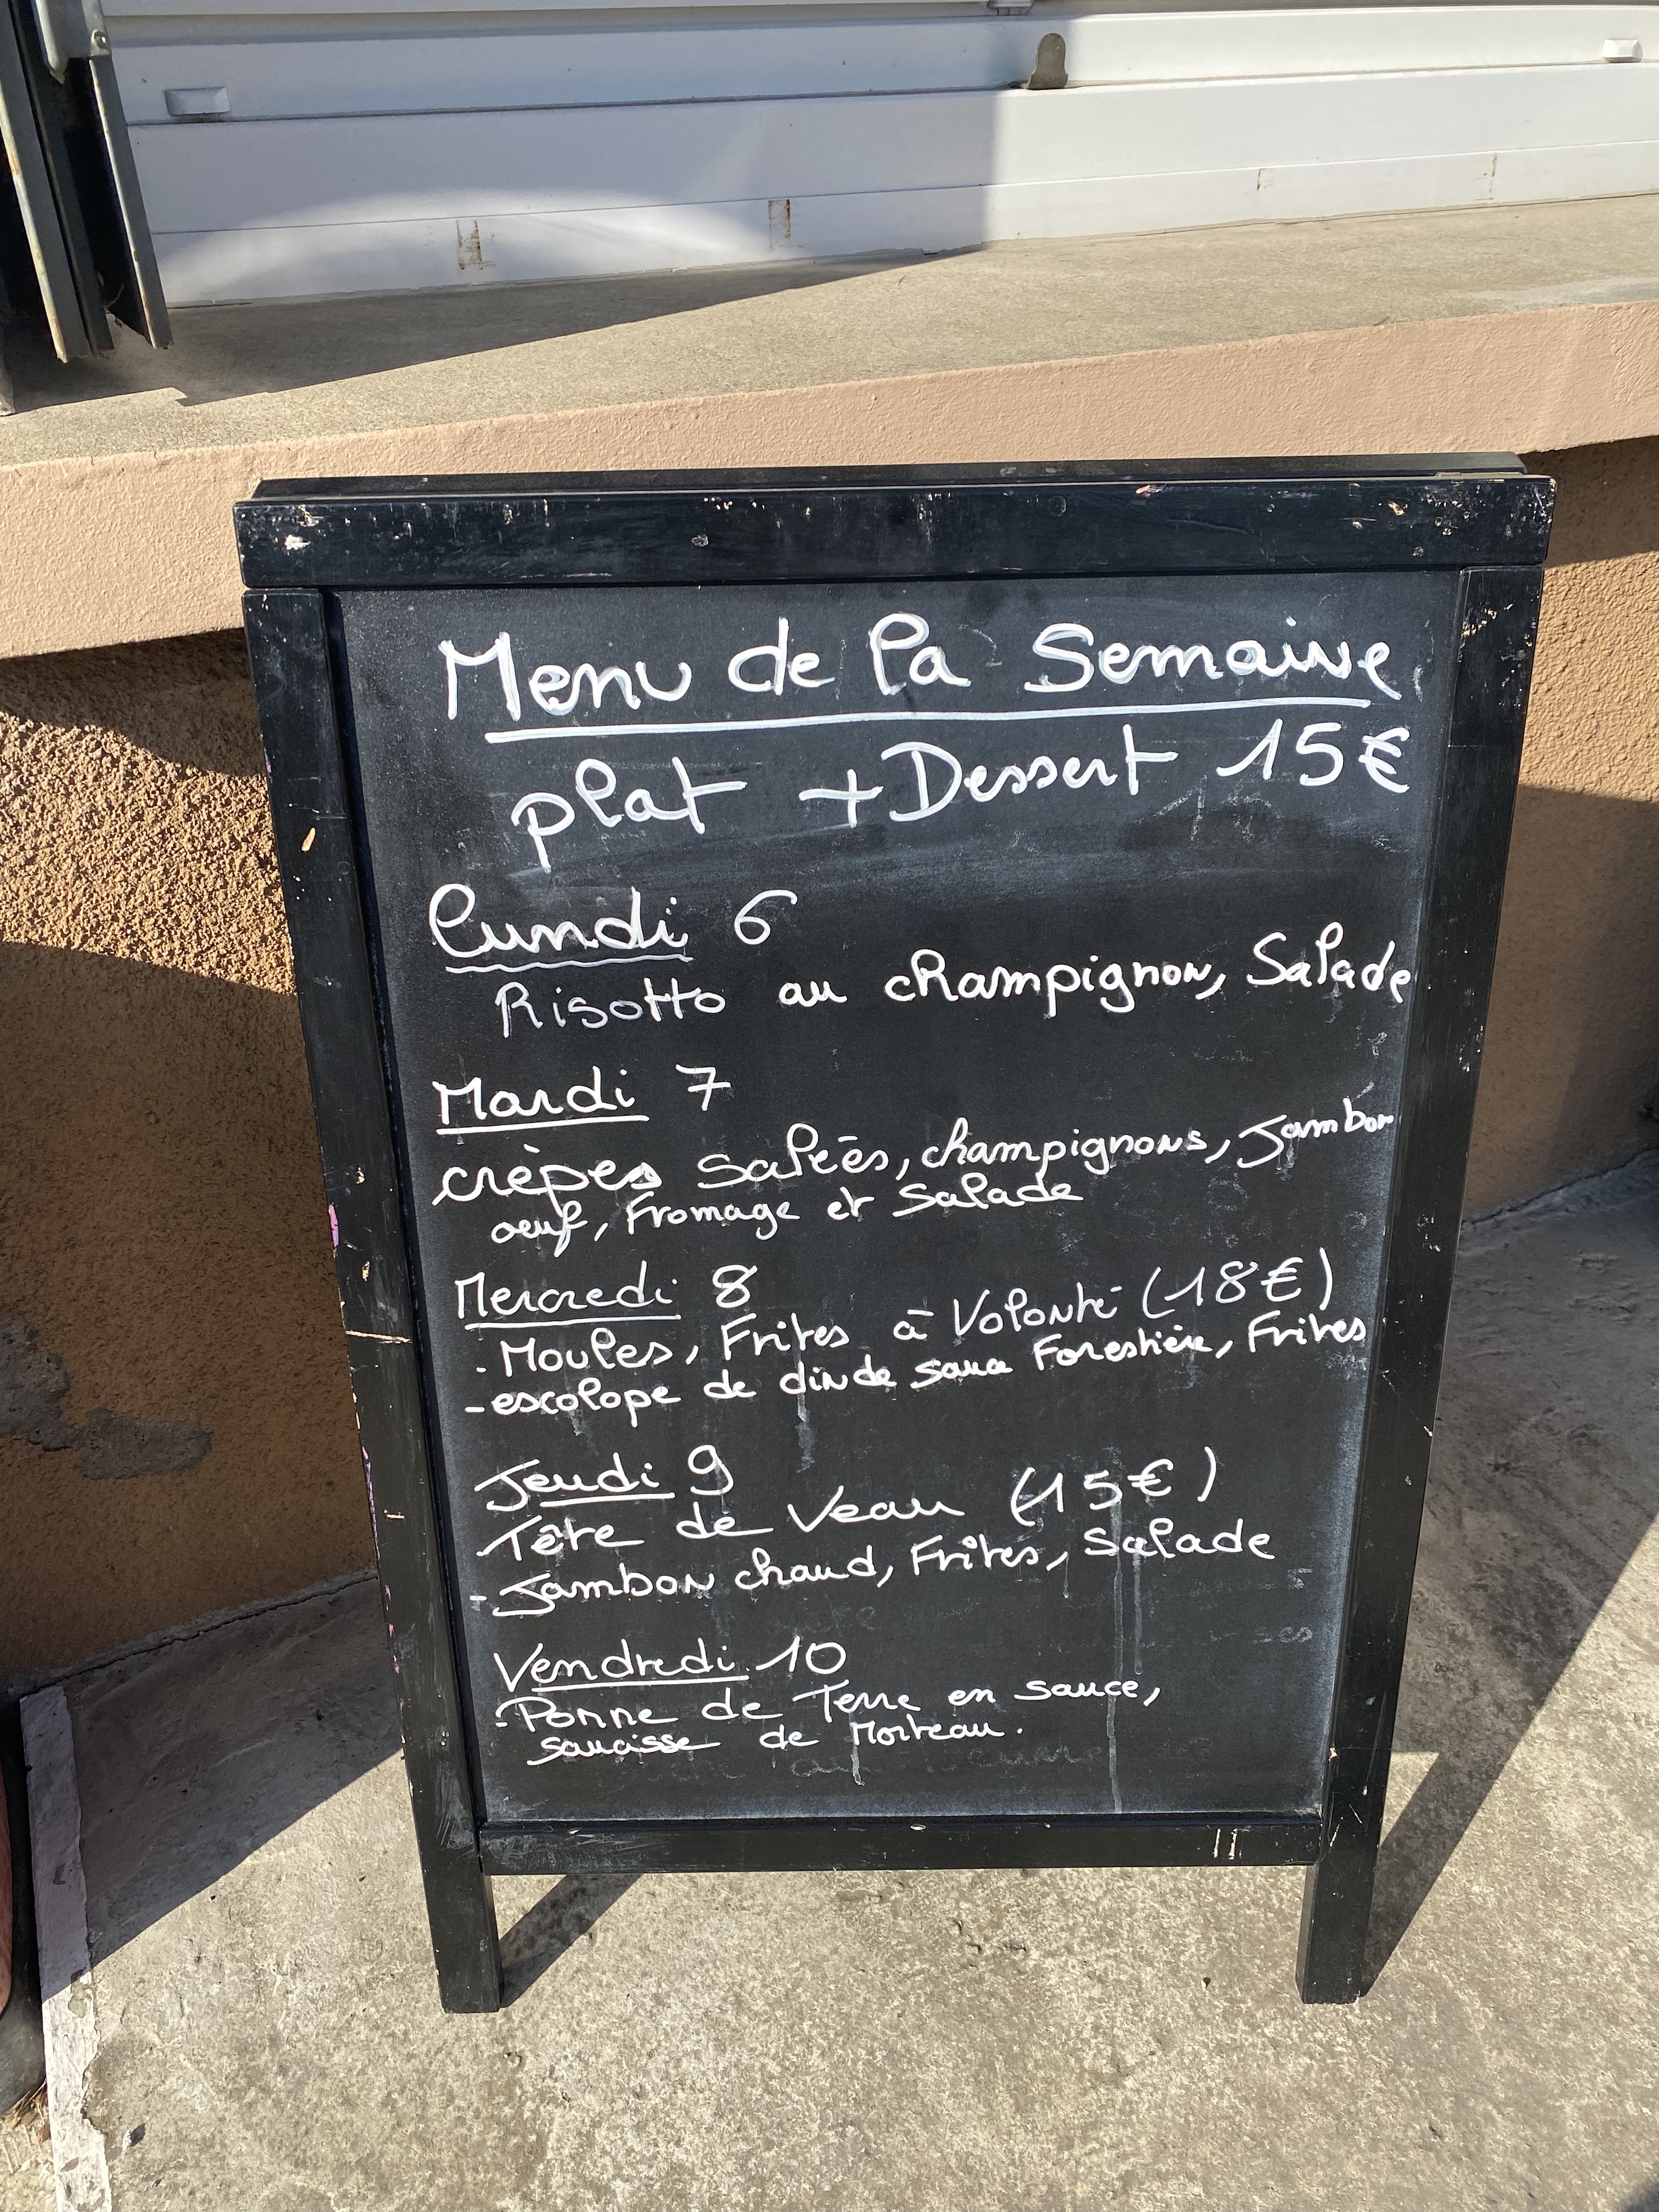 Menu de la Semaine
plat + Dessert 15€
Lundi 6
Risotto au champignon, Salade
Mardi 7
crèpes Salées, champignons, Jambon
oeuf, Fromage et Salade
Mercredi 8
- Moules, Frites à Volonté (18€)
- escolope de dinde sauce Forestière, Frites
Jeudi 9
- Tête de Veau (15€)
- Jambon chaud, Frites, Salade
Vendredi 10
- Ponne de Terre en sauce,
saucisse de Morteau.